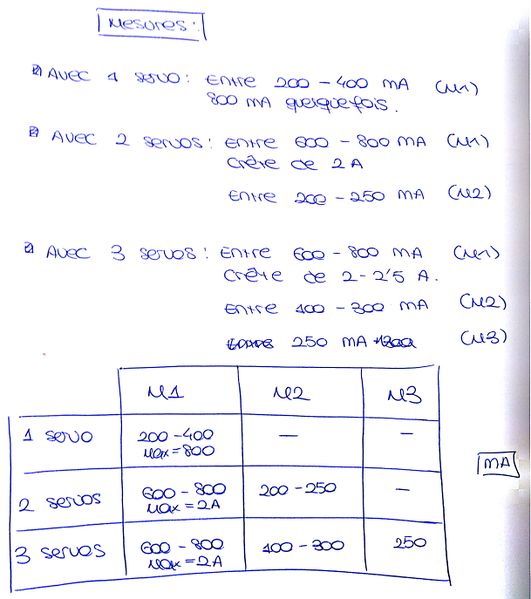 Mesures:
Avec 1 servo: Entre 200 - 400 mA (M1)
800 mA quelquefois.
Avec 2 servos: Entre 600 - 800 mA (M1)
Crête de 2A
Entre 200 - 250 mA (M2)
Avec 3 servos: Entre 600 - 800 mA (M1)
Crête de 2 - 2'5 A.
Entre 400 - 300 mA (M2)
250 mA (M3)
M1 M2 M3
1 servo 200 - 400 — —
Max = 800
mA
2 servos 600 - 800 200 - 250 —
Max = 2A
3 servos 600 - 800 400 - 300 250
Max = 2A